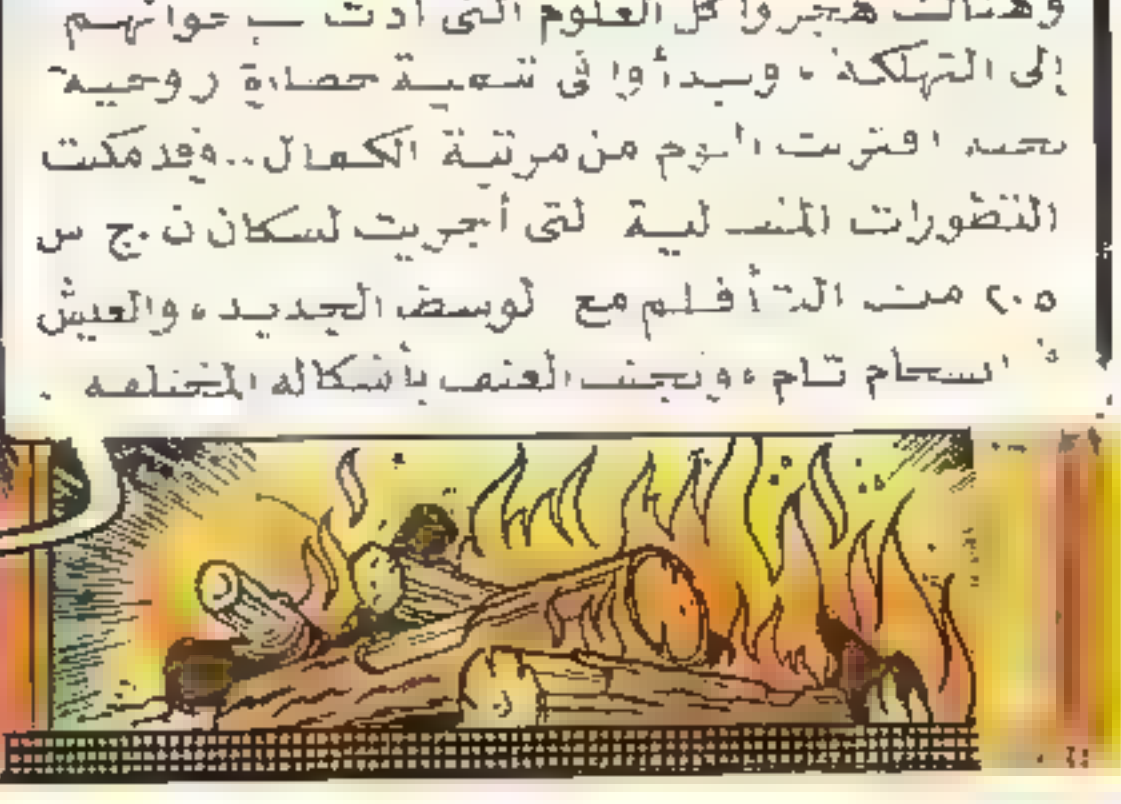 وهنالك هجروا كل العلوم التى أدت
إلى التهلكة ، وبدأوا فى تنمية حضارة روحية
اقتربت اليوم من مرتبة الكمال .. وقد مكنت
التطورات التى أجريت لسكان ن . ج س
٢٠٥ من التأقلم مع الوسط الجديد ، والعيش
انسجام تام ، وتجنب العنف بأشكاله المختلفة .